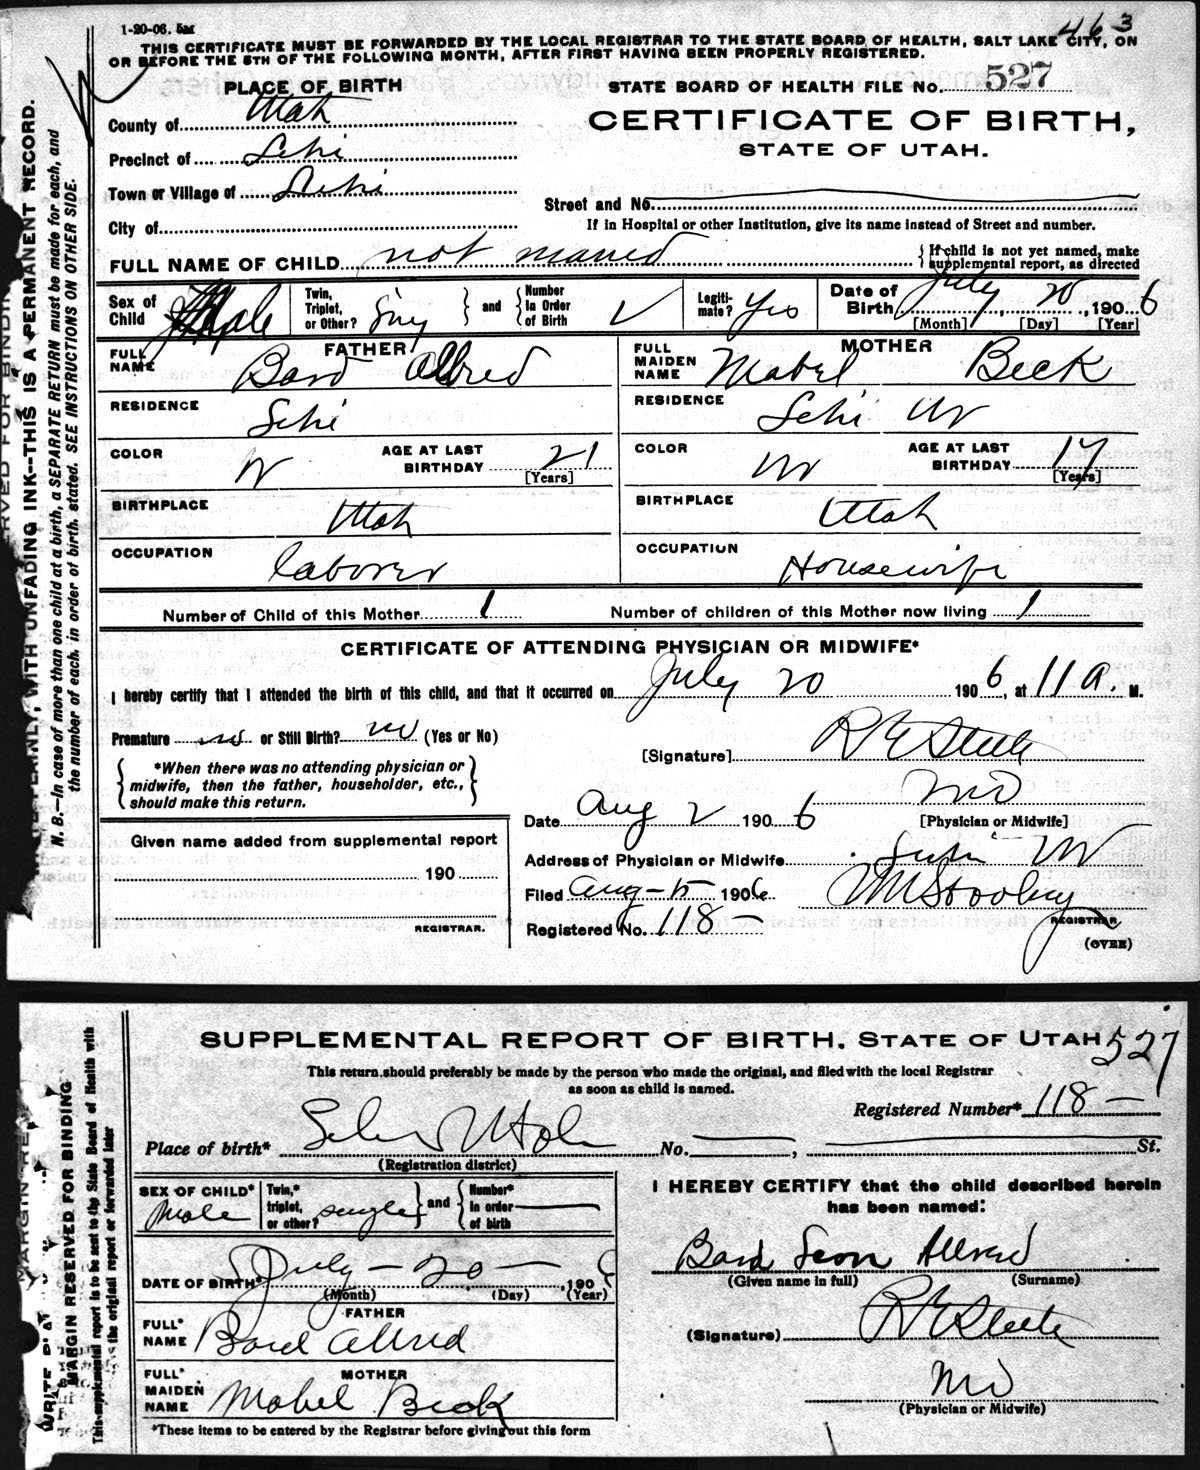 463
1-20-06. 5M
THIS CERTIFICATE MUST BE FORWARDED BY THE LOCAL REGISTRAR TO THE STATE BOARD OF HEALTH, SALT LAKE CITY, ON
OR BEFORE THE 5TH OF THE FOLLOWING MONTH, AFTER FIRST HAVING BEEN PROPERLY REGISTERED.
PLACE OF BIRTH
STATE BOARD OF HEALTH FILE NO. 527
County of Utah
CERTIFICATE OF BIRTH,
STATE OF UTAH.
Precinct of Lehi
Town or Village of Lehi
Street and No.
City of
If in Hospital or other Institution, give its name instead of Street and number.
FULL NAME OF CHILD not named
If child is not yet named, make
supplemental report, as directed
Sex of Child Male
Twin, Triplet, or Other? Sing and Number in Order of Birth
Legitimate? Yes
Date of Birth July 20, 1906
[Month] [Day] [Year]
FATHER
FULL NAME Bard Allred
MOTHER
FULL MAIDEN NAME Mabel Beck
RESIDENCE Lehi
RESIDENCE Lehi Ut
COLOR W
AGE AT LAST BIRTHDAY 21 [Years]
COLOR W
AGE AT LAST BIRTHDAY 17 [Years]
BIRTHPLACE Utah
BIRTHPLACE Utah
OCCUPATION laborer
OCCUPATION Housewife
Number of Child of this Mother 1
Number of children of this Mother now living 1
CERTIFICATE OF ATTENDING PHYSICIAN OR MIDWIFE*
I hereby certify that I attended the birth of this child, and that it occurred on July 20 1906, at 11 a. M.
Premature no or Still Birth? no (Yes or No)
[Signature] R E Steele
MD
[Physician or Midwife]
*When there was no attending physician or
midwife, then the father, householder, etc.,
should make this return.
Date Aug 2 1906
Given name added from supplemental report
190
REGISTRAR.
Address of Physician or Midwife Lehi Ut
Filed Aug-5 1906
REGISTRAR
Registered No. 118-
(OVER)
PLAINLY, WITH UNFADING INK--THIS IS A PERMANENT RECORD.
N. B.--In case of more than one child at a birth, a SEPARATE RETURN must be made for each, and
the number of each, in order of birth, stated. SEE INSTRUCTIONS ON OTHER SIDE.
SUPPLEMENTAL REPORT OF BIRTH, STATE OF UTAH 527
This return should preferably be made by the person who made the original, and filed with the local Registrar
as soon as child is named.
Registered Number* 118-
Place of birth* Lehi Utah No. , St.
(Registration district)
SEX OF CHILD* Male
Twin,* triplet, or other? single and Number* in order of birth
I HEREBY CERTIFY that the child described herein
has been named:
Bard Leon Allred
(Given name in full) (Surname)
DATE OF BIRTH* July-20- 1906
(Month) (Day) (Year)
FATHER
FULL* NAME Bard Allred
(Signature) R E Steele
MOTHER
FULL* MAIDEN NAME Mabel Beck
MD
(Physician or Midwife)
*These items to be entered by the Registrar before giving out this form
MARGIN RESERVED FOR BINDING
This supplemental report is to be sent to the State Board of Health with
the original report or forwarded later